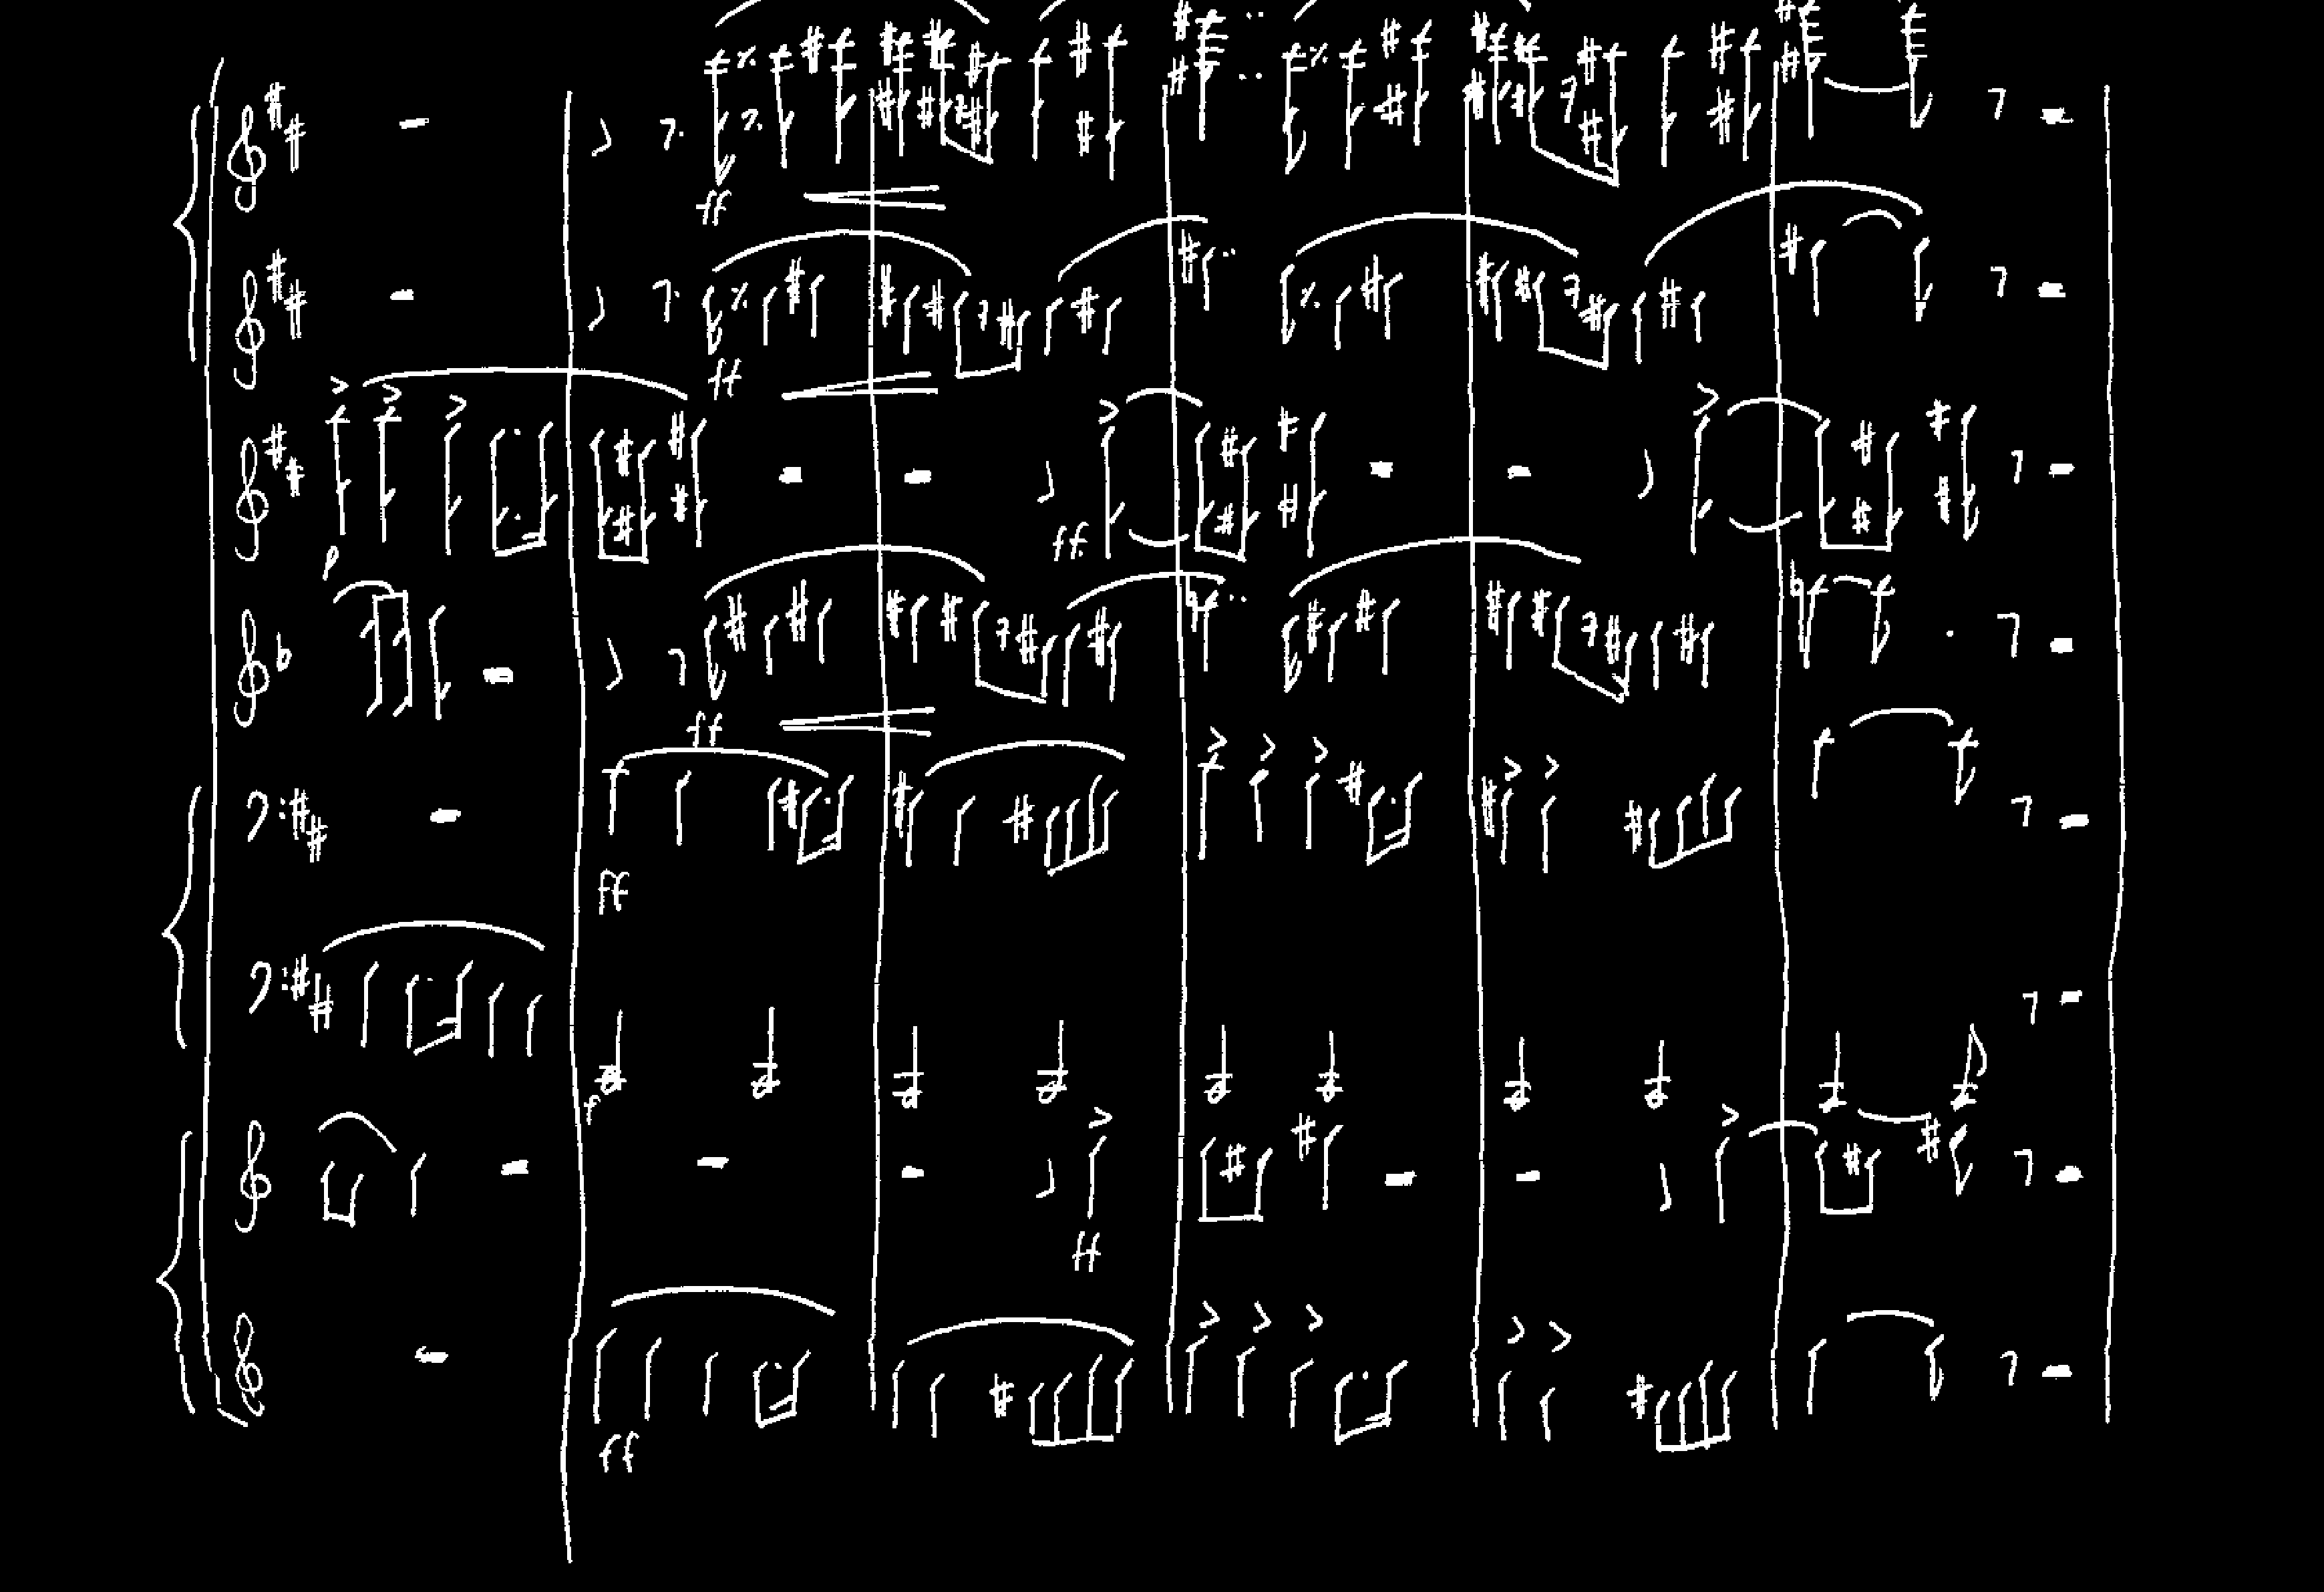 ff
ff
p
ff.
ff
ff
f
ff
ff